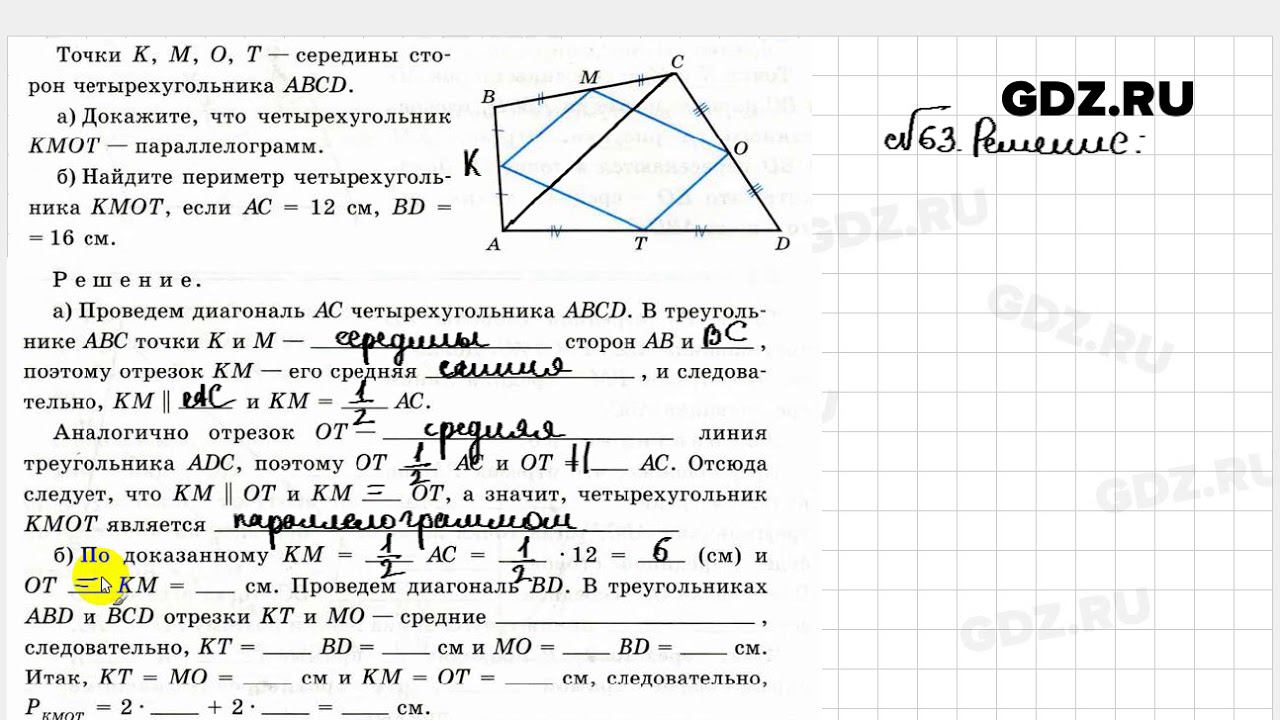 Точки K, M, O, T — середины сто-
рон четырехугольника ABCD.
а) Докажите, что четырехугольник
KMOT — параллелограмм.
б) Найдите периметр четырехуголь-
ника KMOT, если AC = 12 см, BD =
= 16 см.
B M C
K O
A T D
GDZ.RU
№63. Решение:
Решение.
а) Проведем диагональ AC четырехугольника ABCD. В треуголь-
нике ABC точки K и M — середины сторон AB и BC,
поэтому отрезок KM — его средняя линия, и следова-
тельно, KM ∥ AC и KM = 1/2 AC.
Аналогично отрезок OT — средняя линия
треугольника ADC, поэтому OT 1/2 AC и OT = || AC. Отсюда
следует, что KM ∥ OT и KM = OT, а значит, четырехугольник
KMOT является параллелограммом
б) По доказанному KM = 1/2 AC = 1/2 · 12 = 6 (см) и
OT = KM = ___ см. Проведем диагональ BD. В треугольниках
ABD и BCD отрезки KT и MO — средние ___,
следовательно, KT = ___ BD = ___ см и MO = ___ BD = ___ см.
Итак, KT = MO = ___ см и KM = OT = ___ см, следовательно,
P KMOT = 2 · ___ + 2 · ___ = ___ см.
GDZ.RU
GDZ.RU
GDZ.RU
GDZ.RU